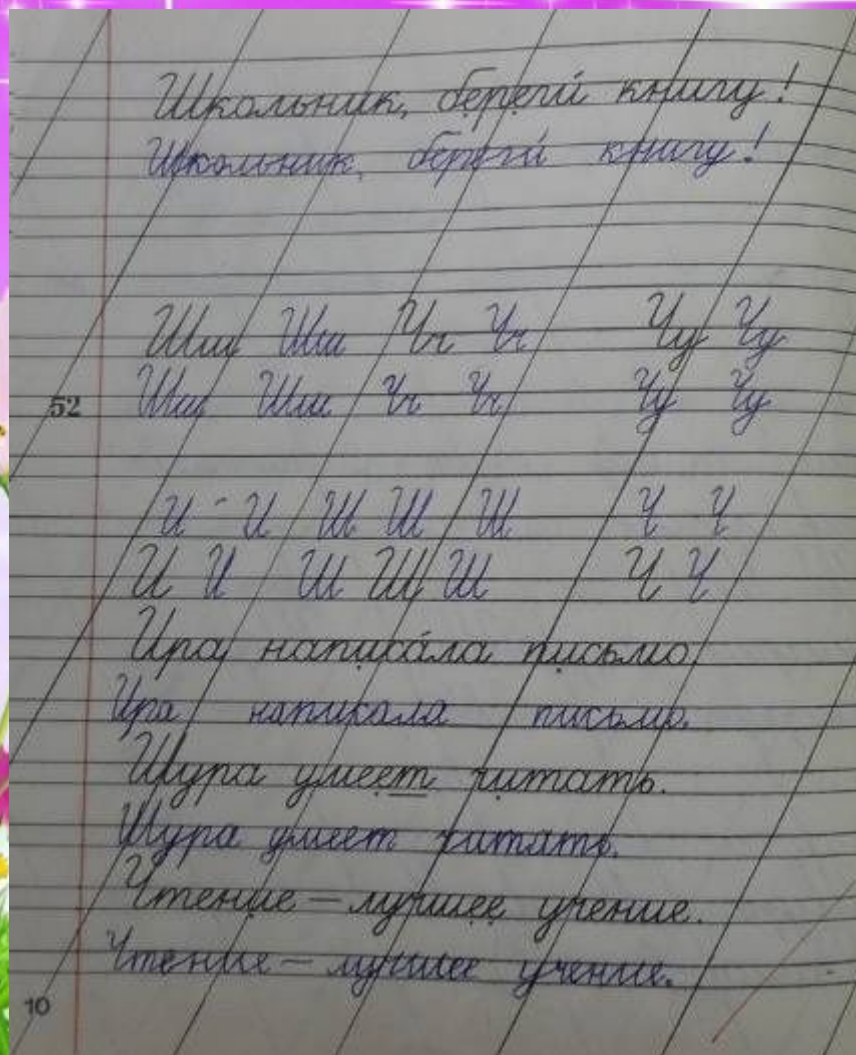 Школьник, береги́ книгу!
Школьник, береги́ книгу!
Шш Шш Чч Чч Чу Чу
52
Шш Шш Чч Чч Чу Чу
И И Ш Ш Ш Ч Ч
И И Ш Ш Ш Ч Ч
Ира написа́ла письмо.
Ира написала письмо.
Шура умеет читать.
Шура умеет читать.
Чтение — лучшее учение.
Чтение — лучшее учение.
10